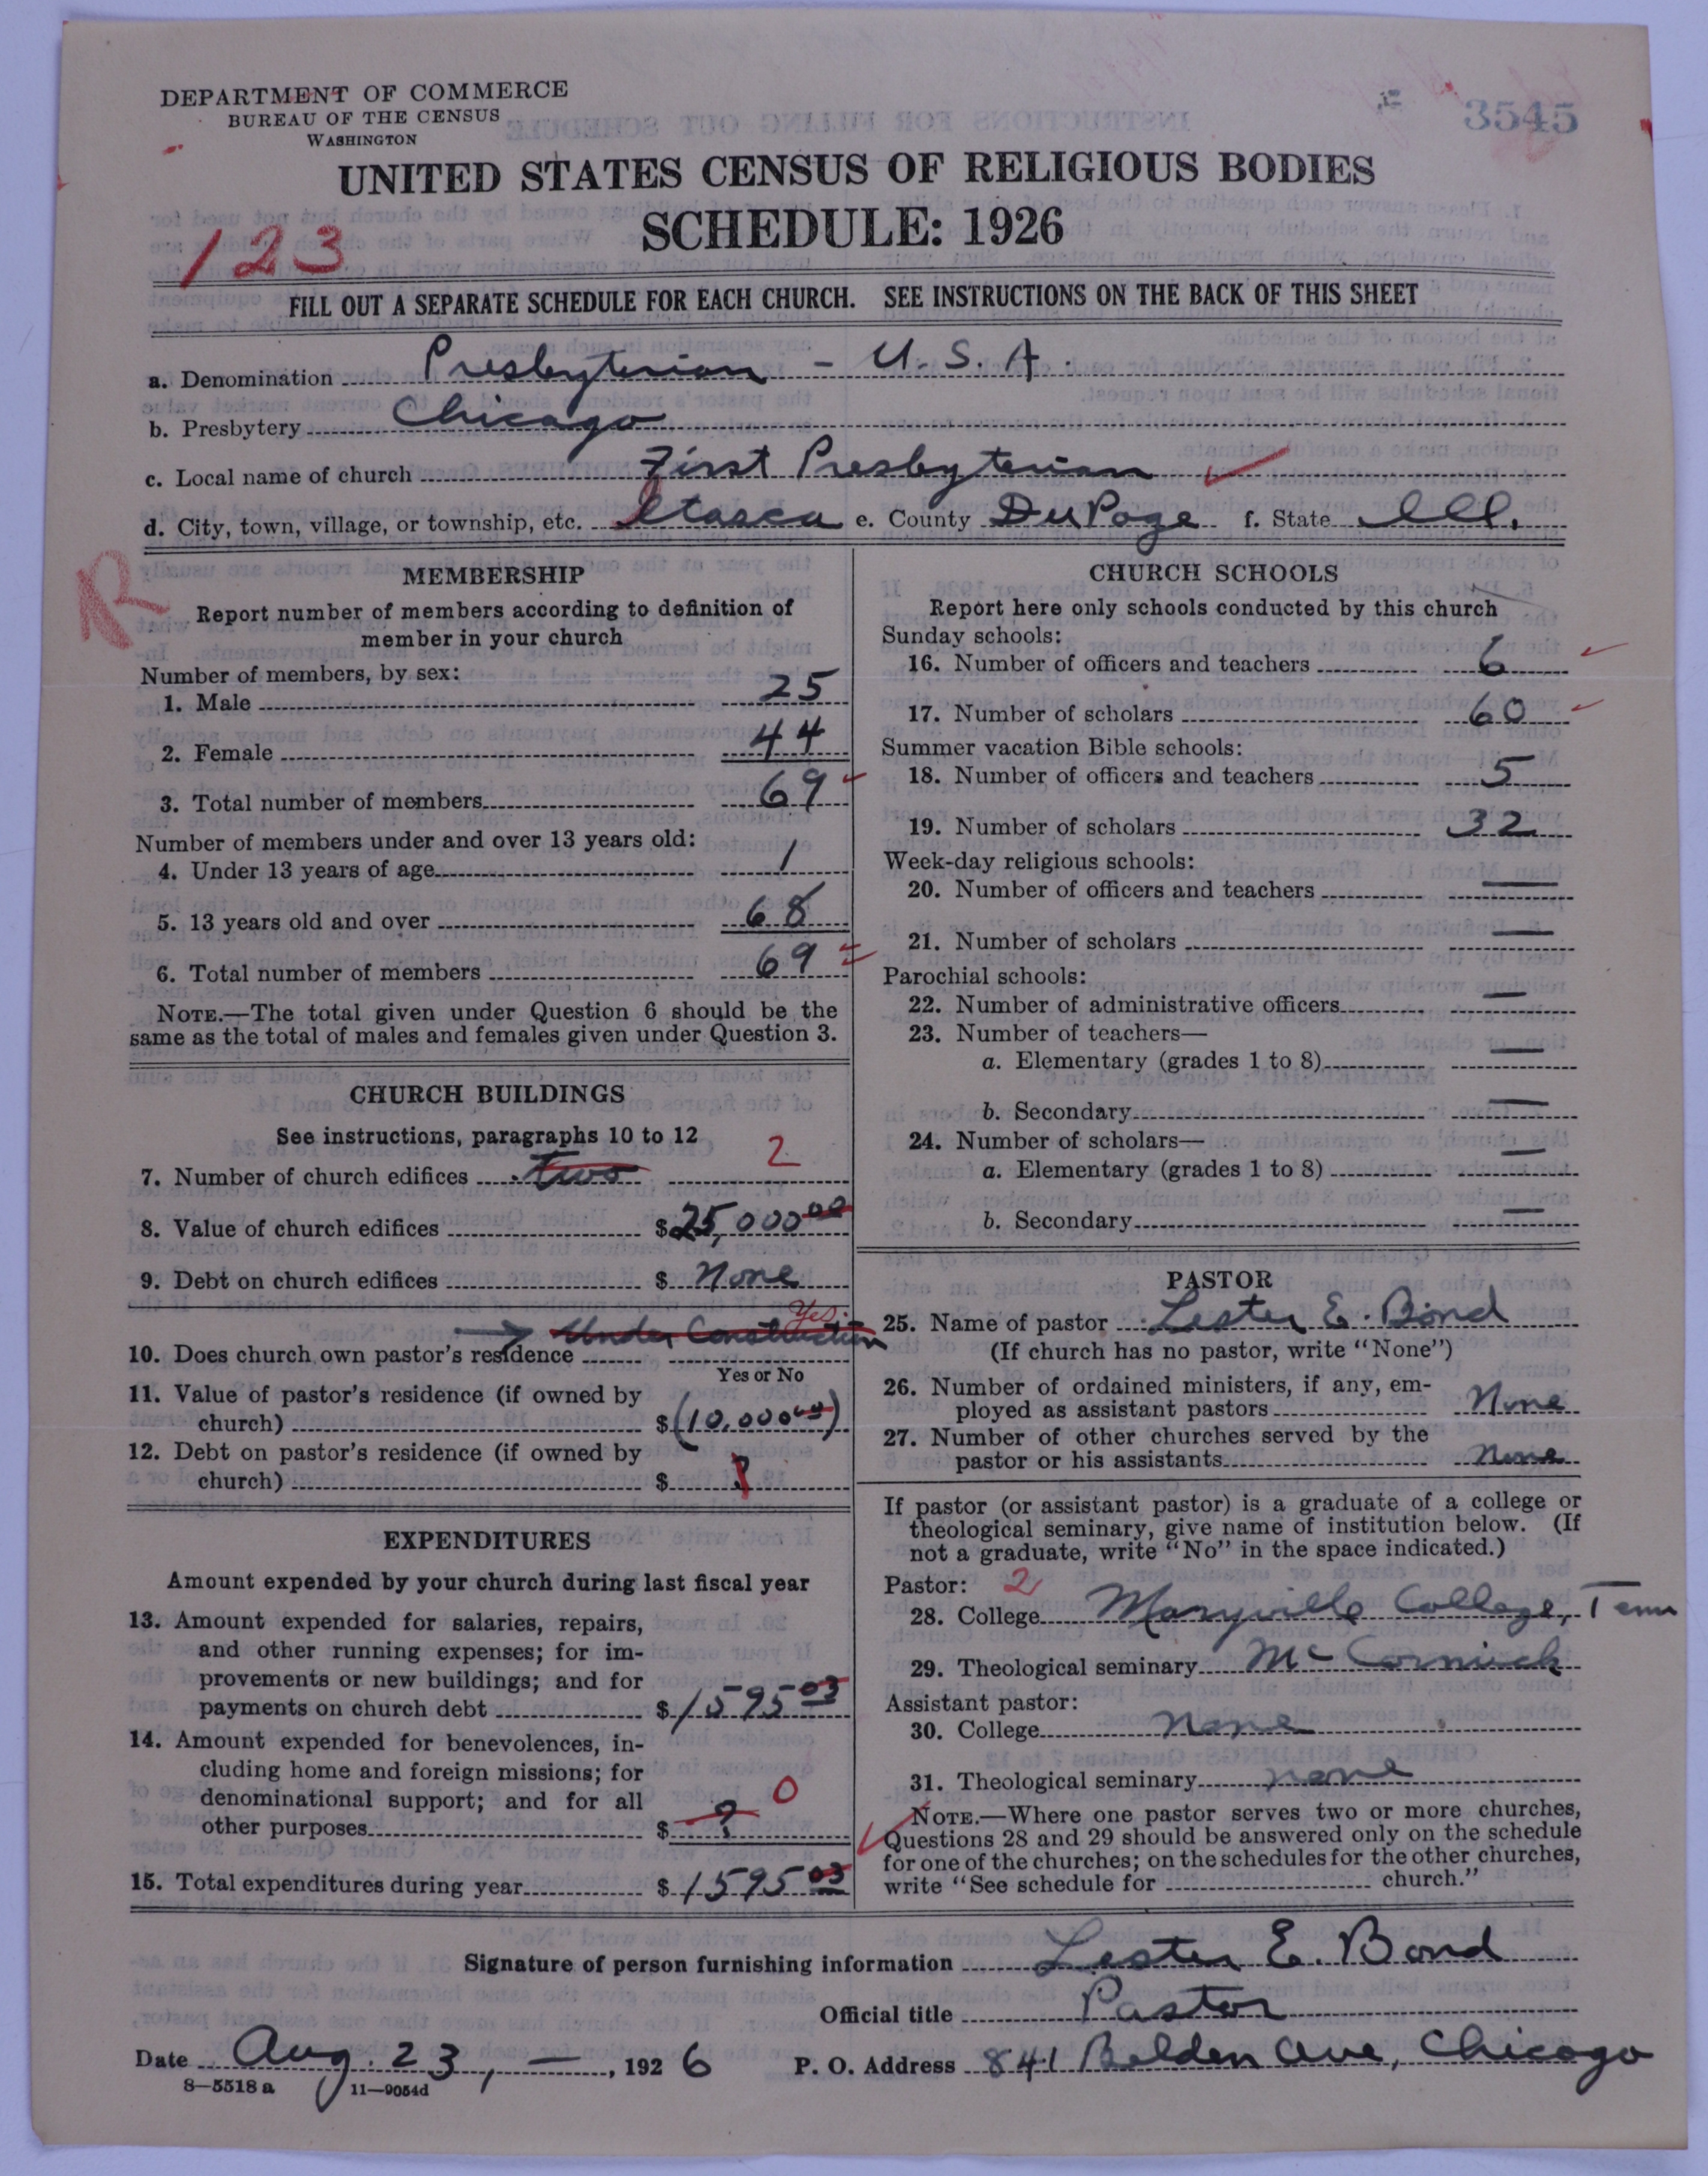 DEPARTMENT OF COMMERCE
BUREAU OF THE CENSUS
WASHINGTON
3545
UNITED STATES CENSUS OF RELIGIOUS BODIES
SCHEDULE: 1926
123
FILL OUT A SEPARATE SCHEDULE FOR EACH CHURCH. SEE INSTRUCTIONS ON THE BACK OF THIS SHEET
a. Denomination Presbyterian - U.S.A.
b. Presbytery Chicago
c. Local name of church First Presbyterian ✓
d. City, town, village, or township, etc. Itasca e. County DuPage f. State Ill.
R
MEMBERSHIP
Report number of members according to definition of
member in your church
Number of members, by sex:
1. Male 25
2. Female 44
3. Total number of members 69
Number of members under and over 13 years old:
4. Under 13 years of age 1
5. 13 years old and over 68
6. Total number of members 69
NOTE.—The total given under Question 6 should be the
same as the total of males and females given under Question 3.
CHURCH BUILDINGS
See instructions, paragraphs 10 to 12
7. Number of church edifices two 2
8. Value of church edifices $25,000 00
9. Debt on church edifices $ None
Under Construction Yes.
10. Does church own pastor's residence
Yes or No
11. Value of pastor's residence (if owned by
church) $(10,000 00)
12. Debt on pastor's residence (if owned by
church) $ ?
EXPENDITURES
Amount expended by your church during last fiscal year
13. Amount expended for salaries, repairs,
and other running expenses; for im-
provements or new buildings; and for
payments on church debt $1595 03
14. Amount expended for benevolences, in-
cluding home and foreign missions; for
denominational support; and for all
other purposes $ ? 0
15. Total expenditures during year $1595 03
CHURCH SCHOOLS
Report here only schools conducted by this church
Sunday schools:
16. Number of officers and teachers 6
17. Number of scholars 60
Summer vacation Bible schools:
18. Number of officers and teachers 5
19. Number of scholars 32
Week-day religious schools:
20. Number of officers and teachers —
21. Number of scholars —
Parochial schools:
22. Number of administrative officers —
23. Number of teachers—
a. Elementary (grades 1 to 8) —
b. Secondary —
24. Number of scholars—
a. Elementary (grades 1 to 8) —
b. Secondary —
PASTOR
25. Name of pastor Lester E. Bond
(If church has no pastor, write "None")
26. Number of ordained ministers, if any, em-
ployed as assistant pastors None
27. Number of other churches served by the
pastor or his assistants None
If pastor (or assistant pastor) is a graduate of a college or
theological seminary, give name of institution below. (If
not a graduate, write "No" in the space indicated.)
Pastor: 2
28. College Maryville College, Tenn
29. Theological seminary McCormick
Assistant pastor:
30. College None
31. Theological seminary none
NOTE.—Where one pastor serves two or more churches,
Questions 28 and 29 should be answered only on the schedule
for one of the churches; on the schedules for the other churches,
write "See schedule for church."
Signature of person furnishing information Lester E. Bond
Official title Pastor
Date Aug. 23, —, 1926 P. O. Address 841 Belden Ave, Chicago
8—5518 a 11—9054d